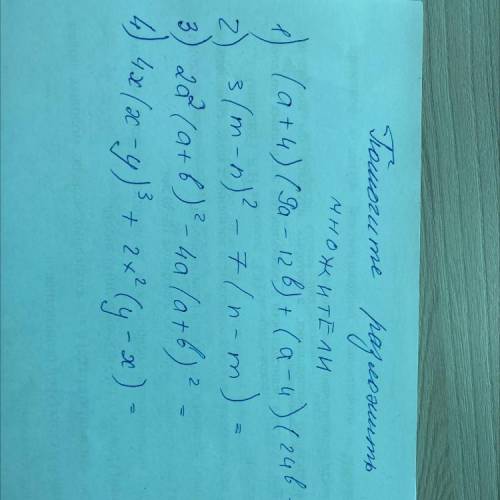 Помогите разложить
множители
1) (a+4)(9a-12b)+(a-4)(24b-
2) 3(m-n)²-7(n-m)=
3) 2a²(a+b)²-4a(a+b)²=
4) 4x(x-y)³+2x²(y-x)=